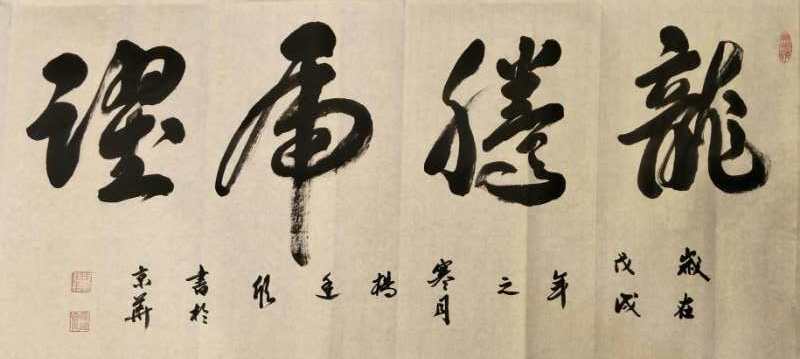 龍騰虎躍
歲在戊戌年之寒月楊書於京華